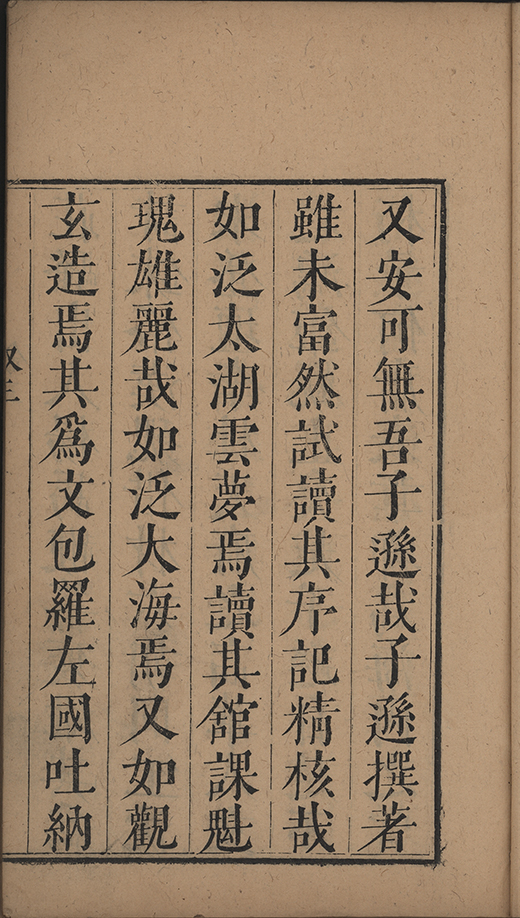 又安可無吾子遜哉子遜撰著
雖未富然試讀其序記精核哉
如泛太湖雲夢焉讀其舘課魁
瑰雄麗哉如泛大海焉又如觀
玄造焉其爲文包羅左國吐納